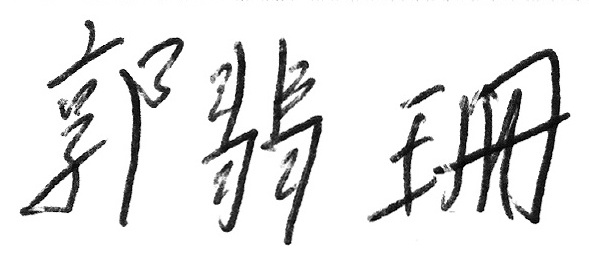 郭翡珊